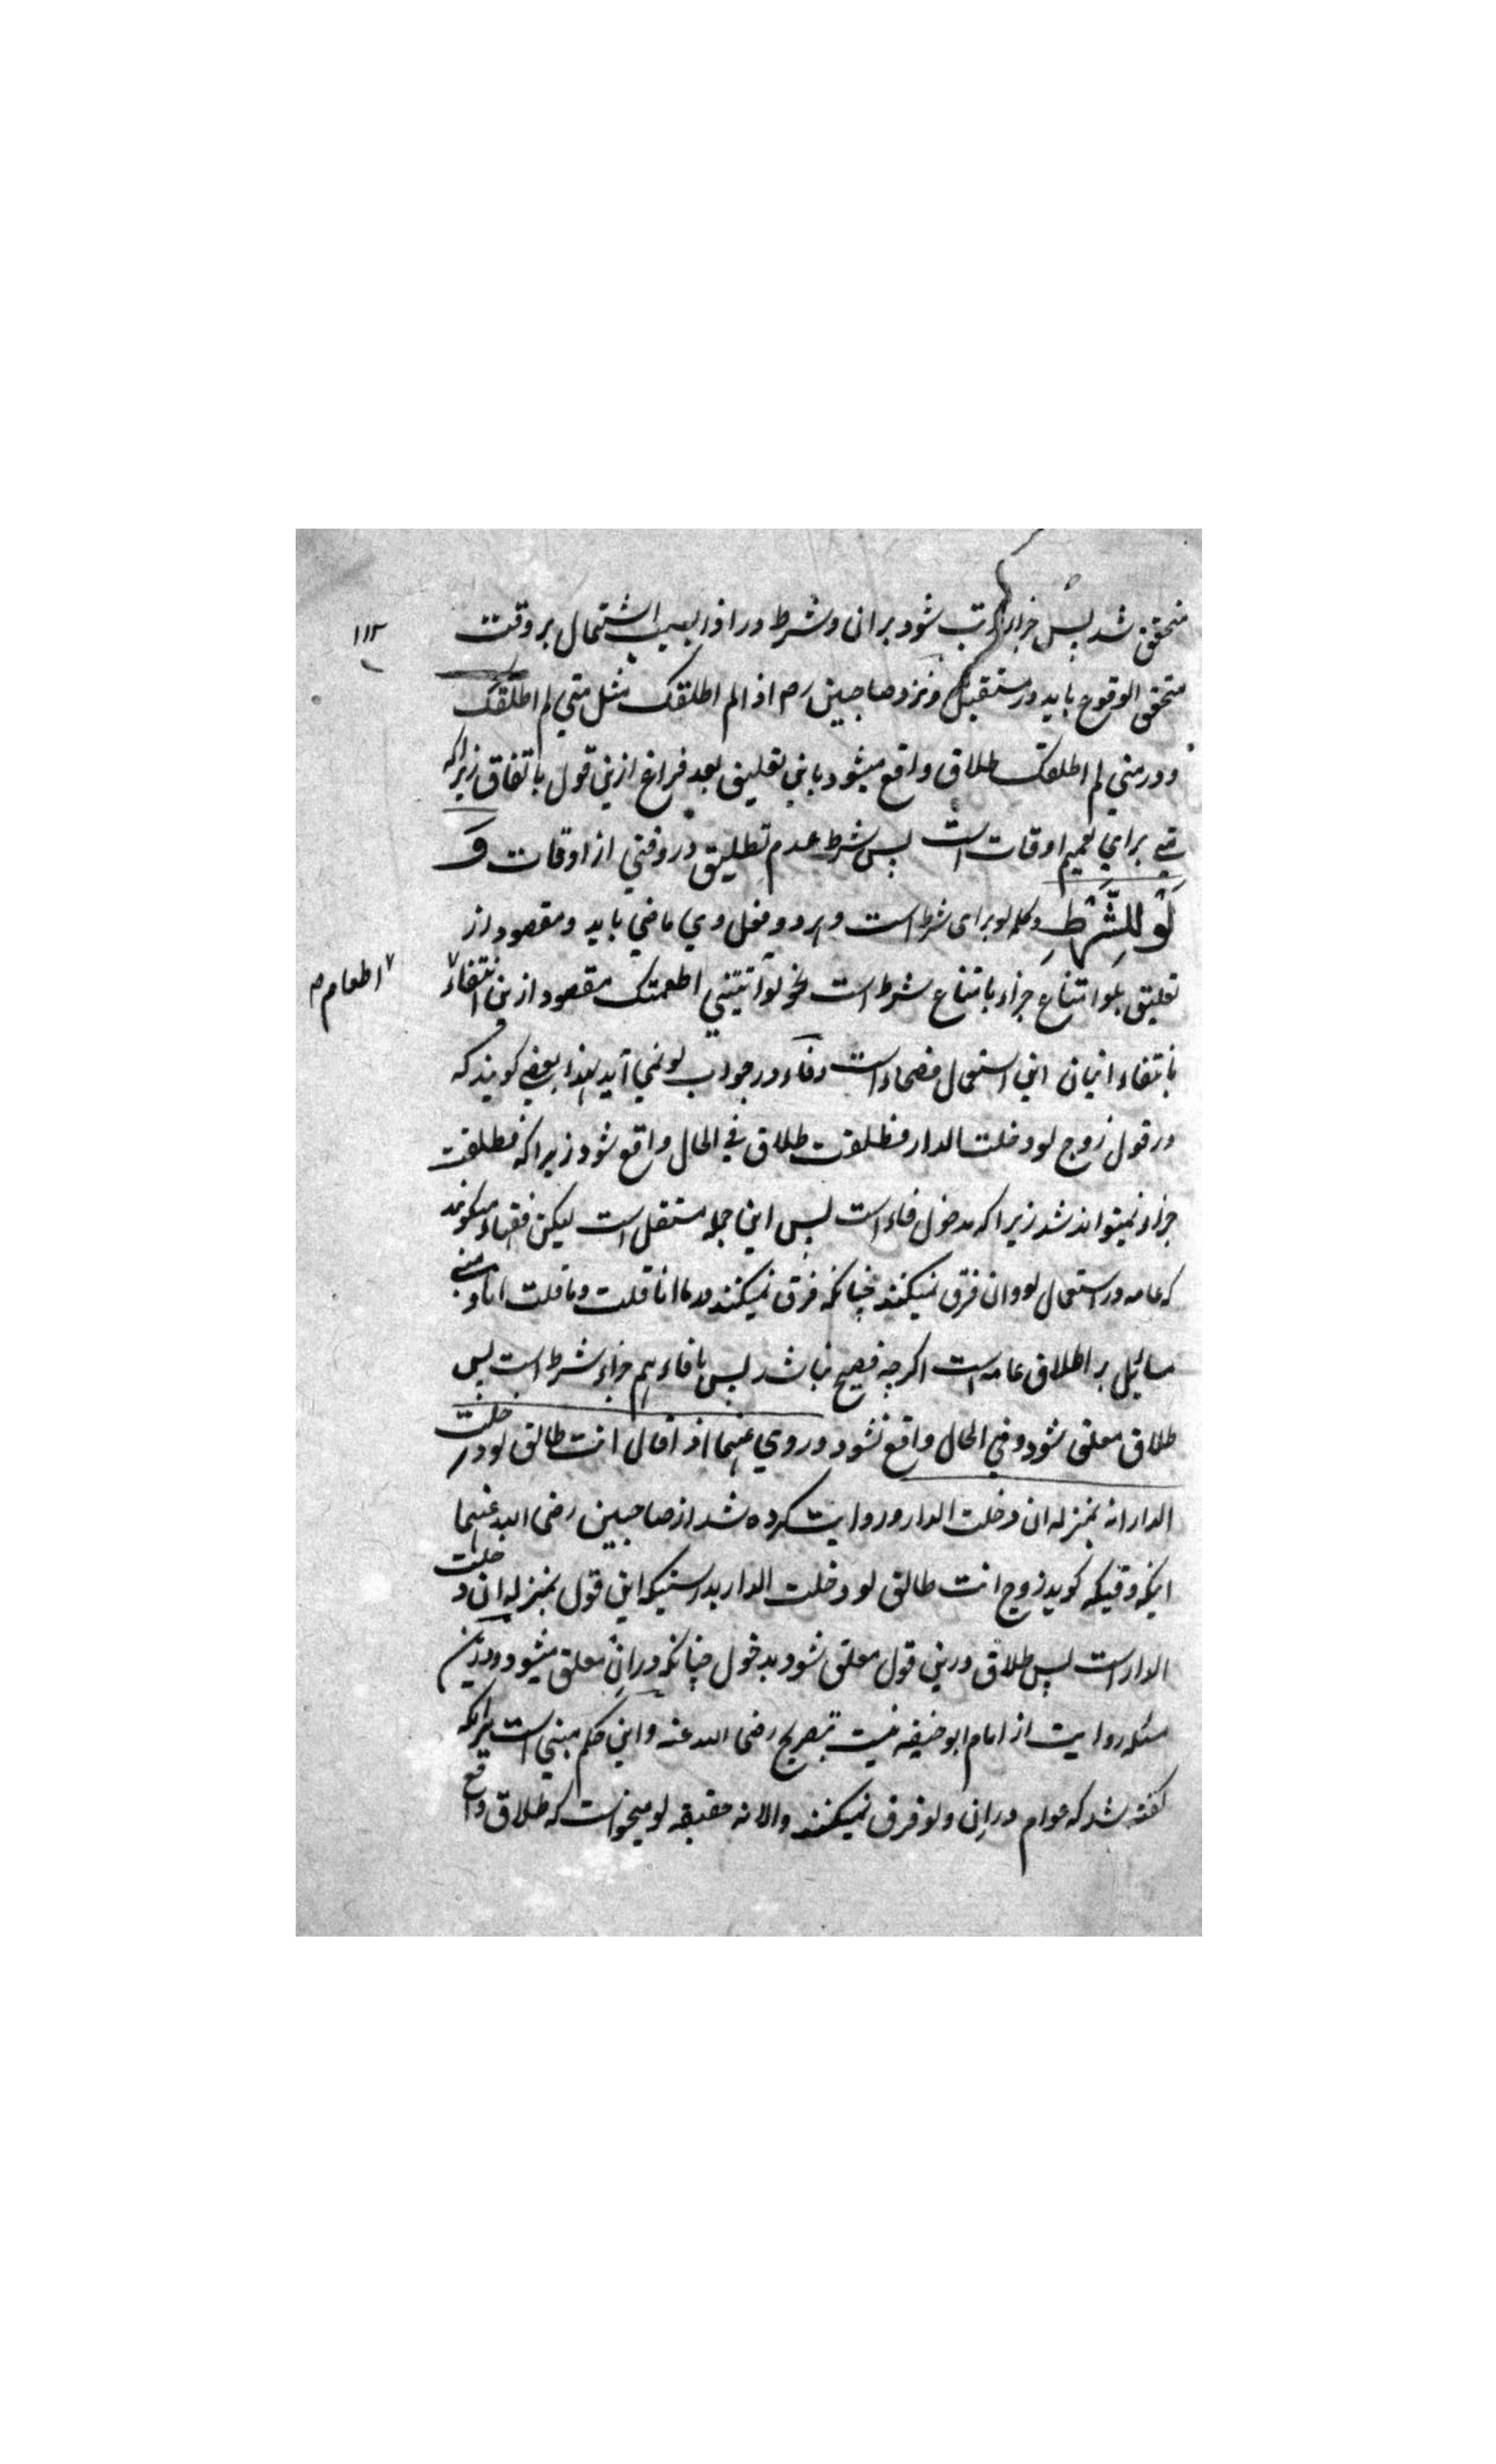 متحقق شد پس جزا مرتب شود بران و شرط در اذا بسبب اشتمال بر وقت
۱۱۲
متحقق الوقوع باید در مستقبل و نزد صاحبین رح اذا لم اطلقک مثل متی لم اطلقک
و در متی لم اطلقک طلاق واقع میشود باین تعلیق بعد فراغ ازین قول باتفاق زیراکه
متی برای تعمیم اوقات است پس شرط عدم تطلیق در وقتی از اوقات وَ
لَوْ لِلشَّرْطِ و کلمه لو برای شرط است و هر دو فعل وی ماضی باید و مقصود از
تعلیق بلو امتناع جزاء بامتناع شرط است نحو لو آتیتنی اطعمتک مقصود ازین انتفاء
اطعام
بانتفاء اتیان این استعمال فصحاء است و فاء در جواب لو نمی آید لهذا بعضی گویند که
در قول زوج لو دخلت الدار فطلقت طلاق فی الحال واقع شود زیراکه فطلقت
جزاء نمیتواند شد زیراکه مدخول فاء است پس این جمله مستقل است لیکن فقهاء میگویند
که عامه در استعمال لو و ان فرق نمیکنند چنانکه فرق نمیکنند در ما انا قلت و ما قلت انا و مبنی
مسائل بر اطلاق عامه است اگرچه فصیح نباشد پس با فاء هم جزاء شرط است پس
طلاق معلق شود و فی الحال واقع نشود و روی عنهما اذا قال انت طالق لو دخلت
الدار انه بمنزله ان دخلت الدار و روایت کرده شد از صاحبین رضی الله عنهما
اینکه وقتیکه گوید زوج انت طالق لو دخلت الدار بدرستیکه این قول بمنزله ان دخلت
الدار است پس طلاق درین قول معلق شود بدخول چنانکه دران معلق میشود و درین
مسئله روایت از امام ابو حنیفه نیست بتصریح رضی الله عنه و این حکم مبنی است برانکه
گفته شد که عوام در ان و لو فرق نمیکنند والا نه حقیقه لو میخواست که طلاق واقع